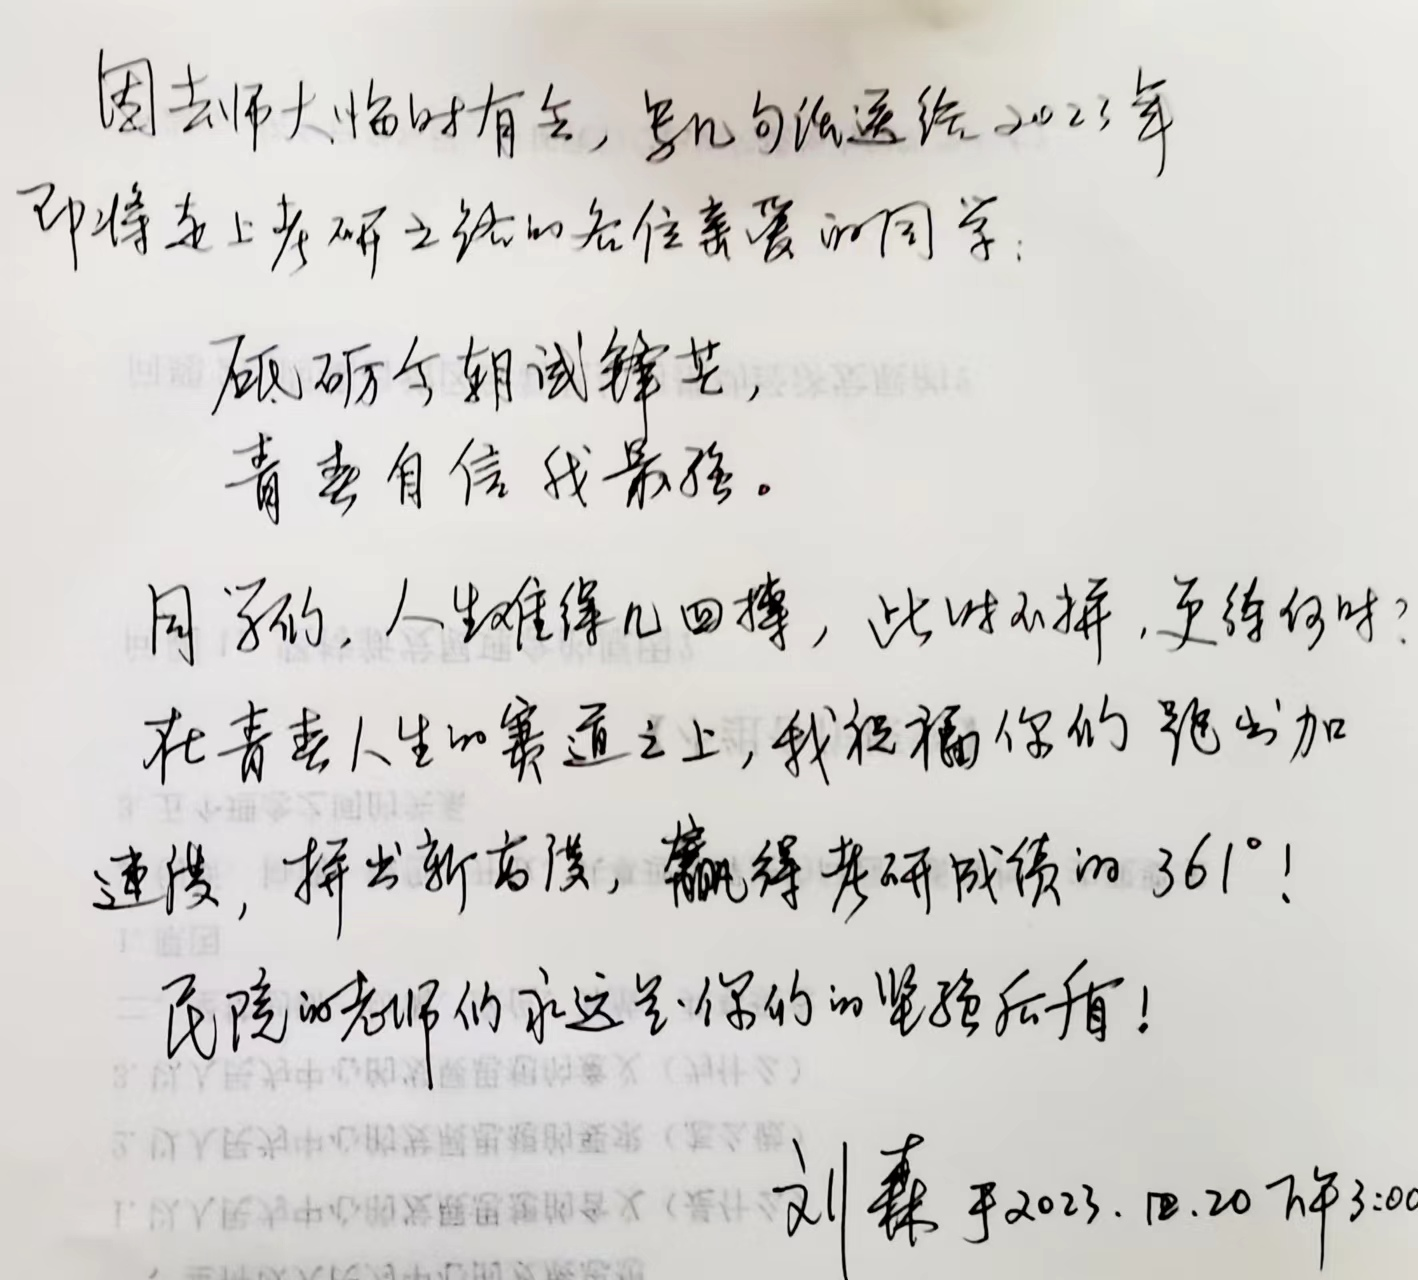 因去师大临时有会，写几句话送给2023年
即将走上考研之路的各位亲爱的同学：
砥砺今朝试锋芒，
青春自信我最强。
同学们，人生难得几回搏，此时不拼，更待何时？
在青春人生的赛道之上，我祝福你们跑出加
速度，拼出新高度，赢得考研成绩的361°！
民院的老师们永远是你们的坚强后盾！
刘森 于2023.12.20 下午3:00